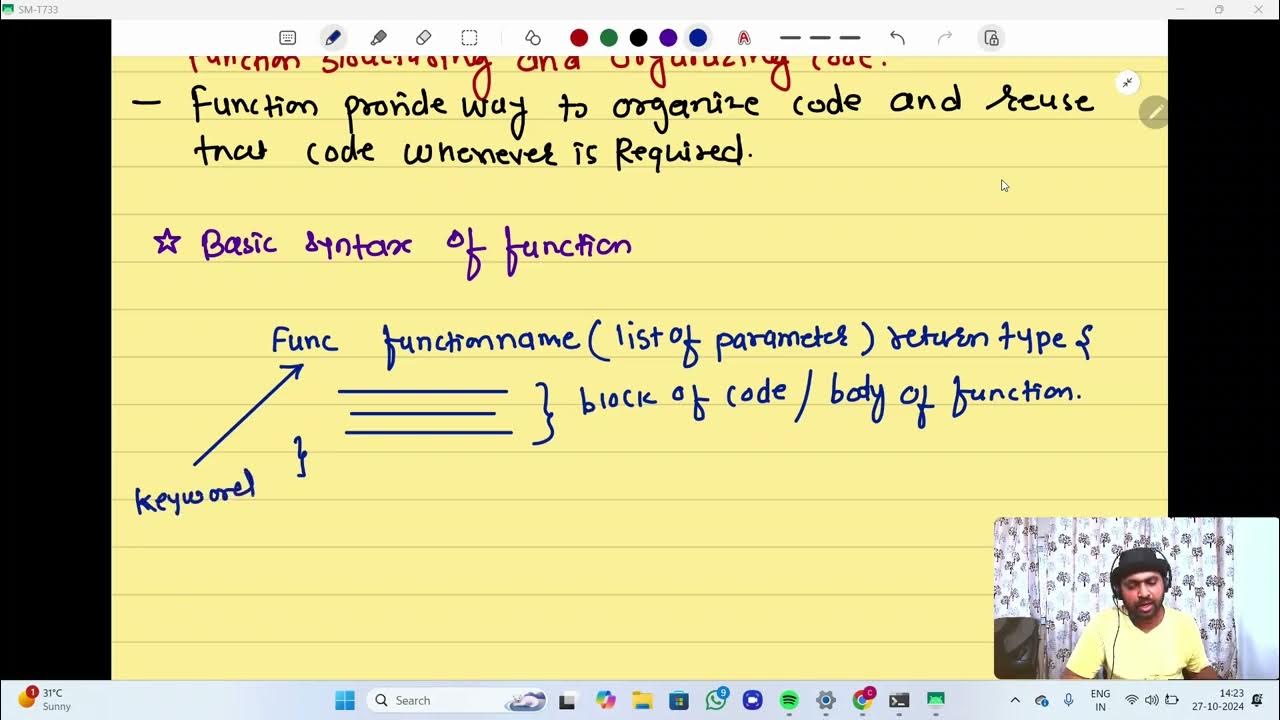 SM-T733
function structuring and organizing code.
– function provide way to organize code and reuse
that code whenever is Required.
☆ Basic syntax of function
Func functionname (list of parameter) return type {
} block of code / body of function.
}
keyword
31°C
Sunny
1
Search
9
ENG
IN
14:23
27-10-2024